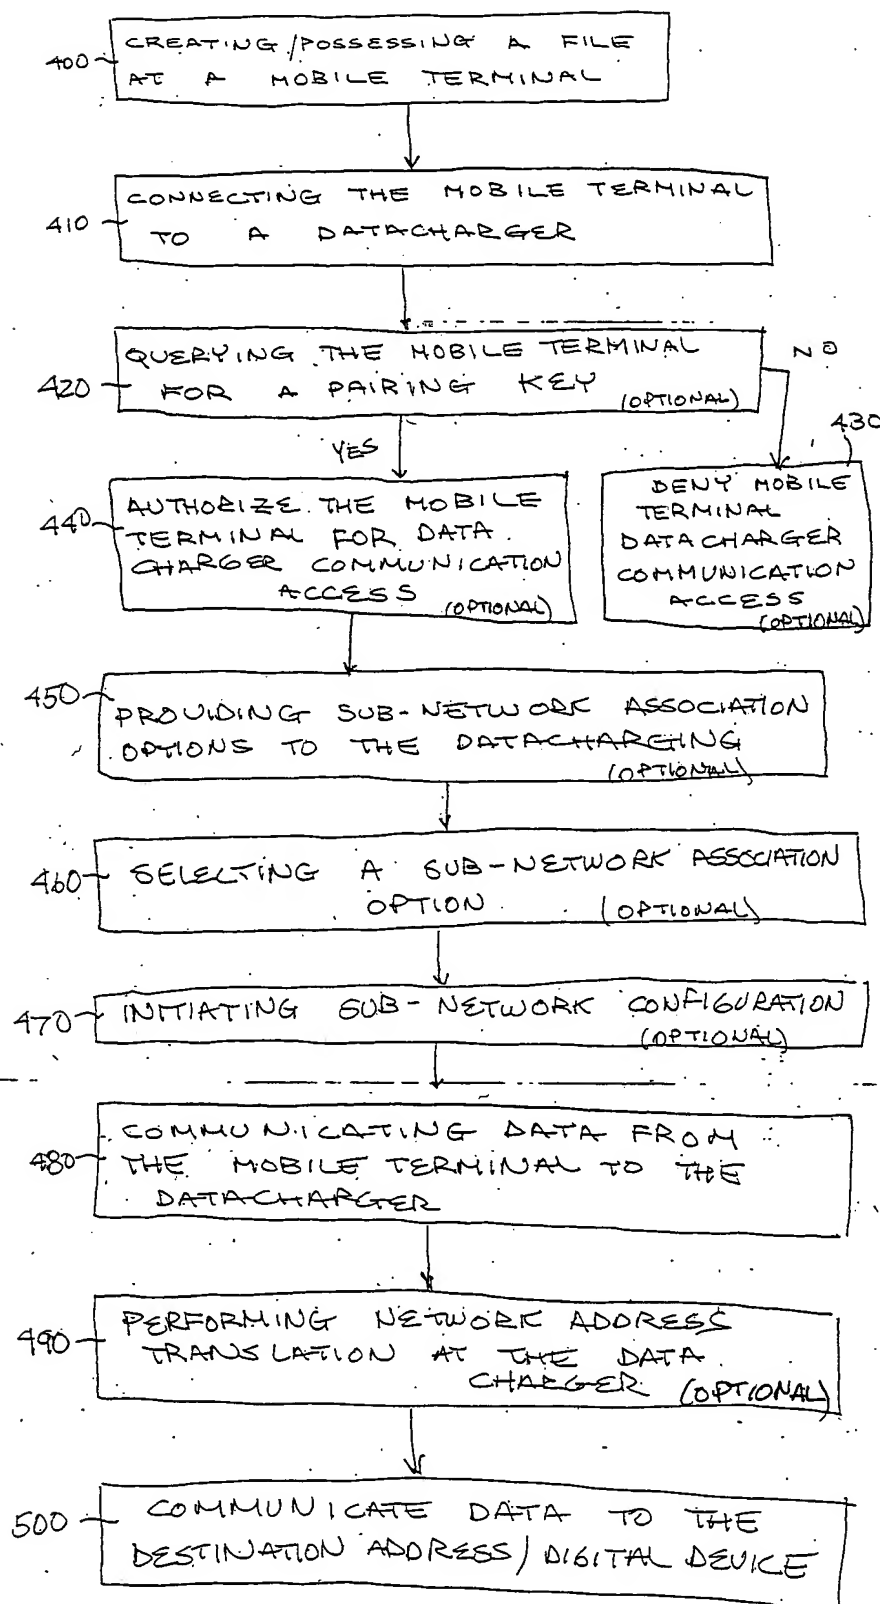 CREATING/POSSESSING A FILE
400
AT A MOBILE TERMINAL
CONNECTING THE MOBILE TERMINAL
410
TO A DATACHARGER
QUERYING THE MOBILE TERMINAL
NO
420
FOR A PAIRING KEY
(OPTIONAL)
YES
430
AUTHORIZE THE MOBILE
440
TERMINAL FOR DATA
CHARGER COMMUNICATION
ACCESS
(OPTIONAL)
DENY MOBILE
TERMINAL
DATACHARGER
COMMUNICATION
ACCESS
(OPTIONAL)
450
PROVIDING SUB-NETWORK ASSOCIATION
OPTIONS TO THE DATACHARGING
(OPTIONAL)
460
SELECTING A SUB-NETWORK ASSOCIATION
OPTION (OPTIONAL)
470
INITIATING SUB-NETWORK CONFIGURATION
(OPTIONAL)
COMMUNICATING DATA FROM
480
THE MOBILE TERMINAL TO THE
DATACHARGER
PERFORMING NETWORK ADDRESS
490
TRANSLATION AT THE DATA
CHARGER (OPTIONAL)
500
COMMUNICATE DATA TO THE
DESTINATION ADDRESS/DIGITAL DEVICE